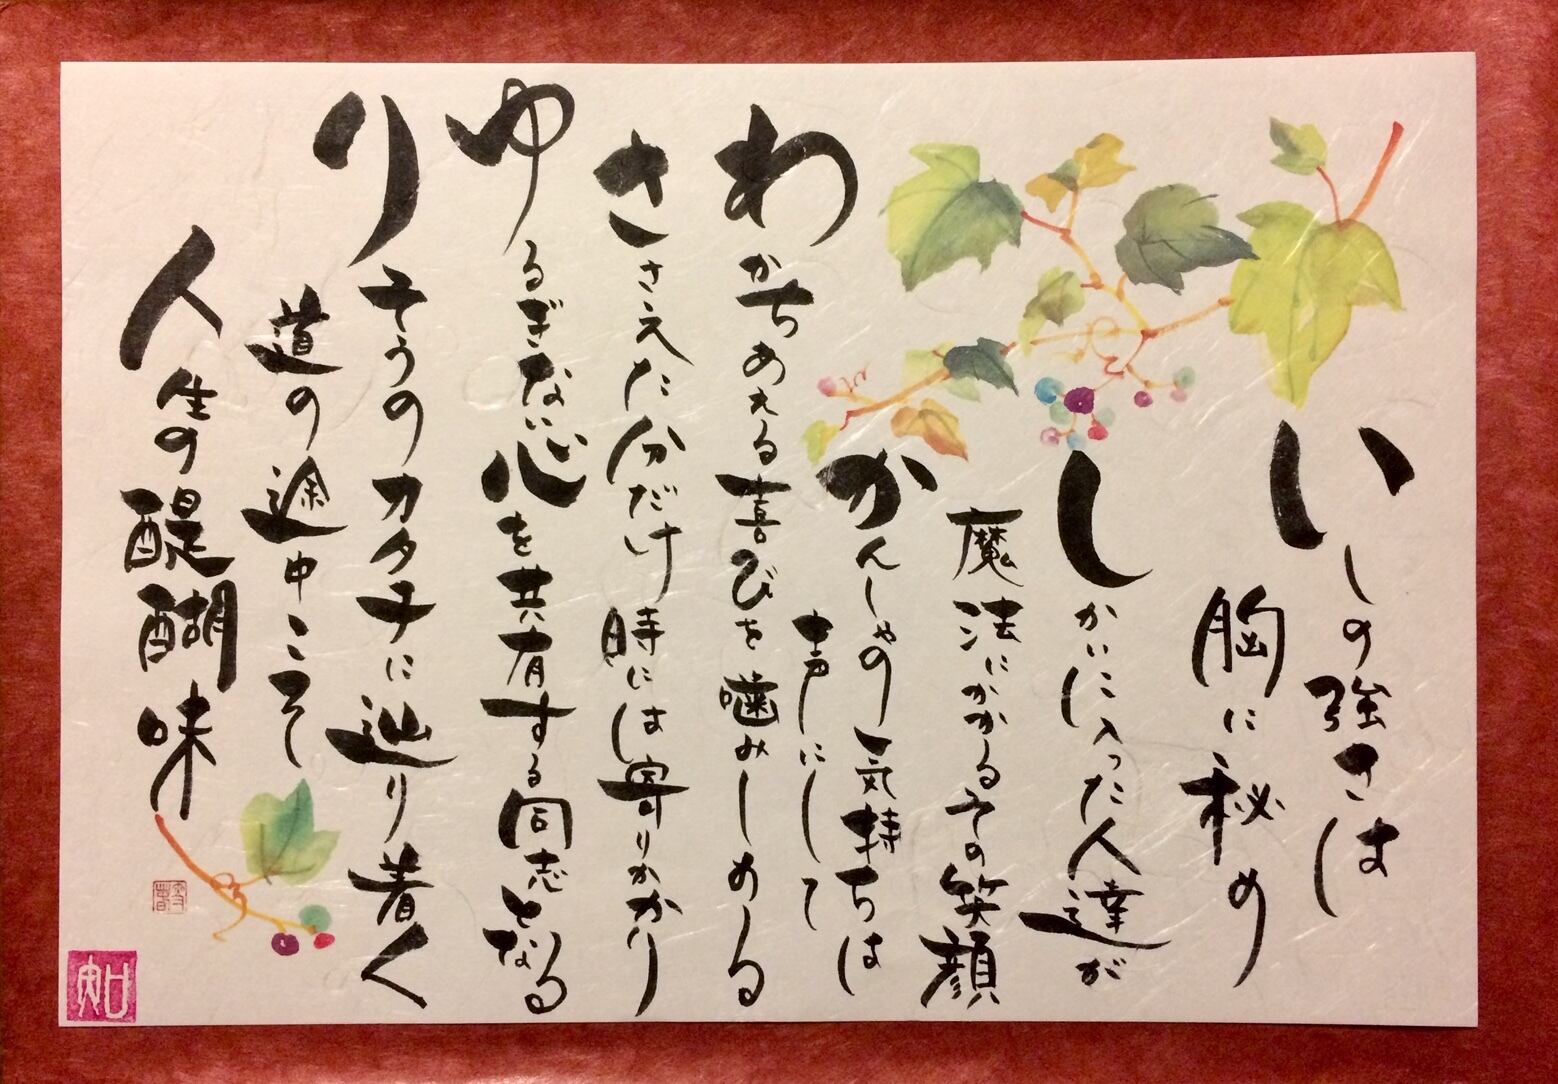 いしの強さは
胸に秘め
しかいに入った人達が
魔法にかかるその笑顔
かんしゃの気持ちは
声にして
わかちあえる喜びを噛みしめる
ささえた分だけ時には寄りかかり
ゆるぎない心を共有する同志となる
りそうのカタチに辿り着く
道の途中こそ
人生の醍醐味
如